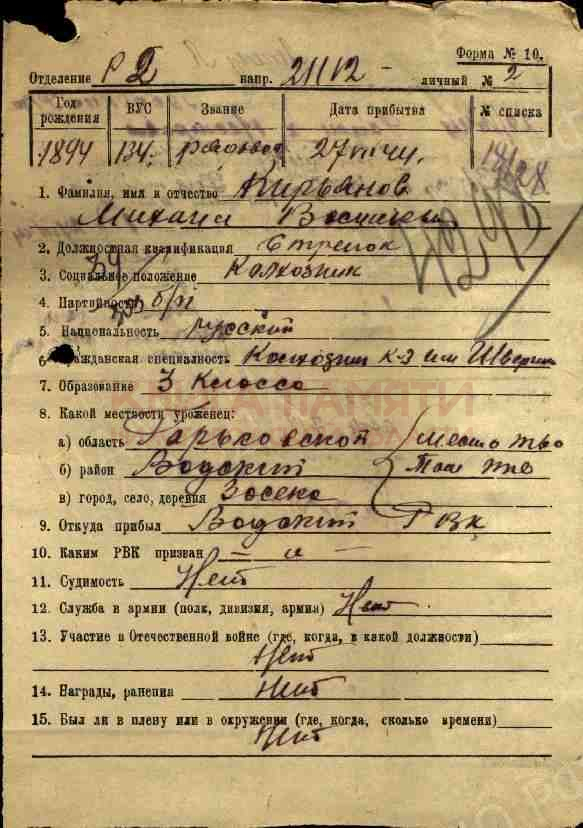 Форма № 10.
Отделение Р 2 напр. 21112 личный № 2
Год рождения ВУС Звание Дата прибытия № списка
1894 134.
1. Фамилия, имя и отчество Кирьянов
Михаил
2. Должностная квалификация Стрелок
3. Социальное положение Колхозник
4. Партийность б/п
5. Национальность Русский
6. Гражданская специальность Колхозник к-з им
7. Образование 3 класса
8. Какой местности уроженец:
а) область Горьковской место ж-во
б) район Вадский там же
в) город, село, деревня
9. Откуда прибыл Вадский РВК
10. Каким РВК призван — „ —
11. Судимость Нет
12. Служба в армии (полк, дивизия, армия) Нет
13. Участие в Отечественной войне (где, когда, в какой должности)
Нет
14. Награды, ранения Нет
15. Был ли в плену или в окружении (где, когда, сколько времени)
Нет
КНИГА ПАМЯТИ